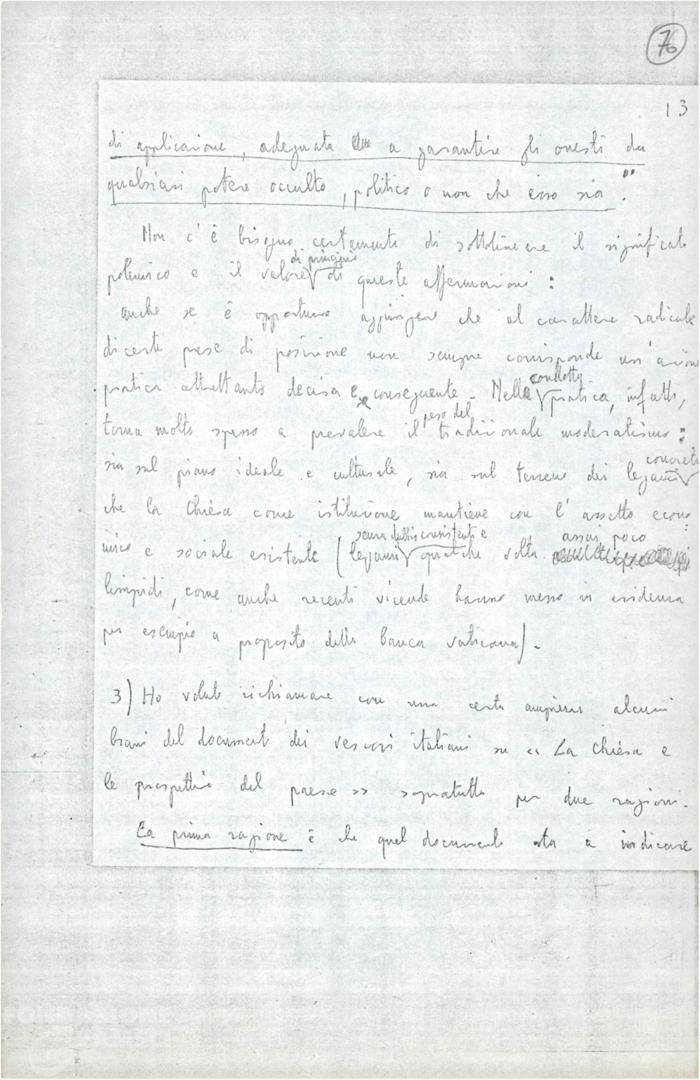 76
13
di applicazione, adeguata a garantire gli onesti da
qualsiasi potere occulto, politico o non che esso sia".
Non c'è bisogno certamente di sottolineare il significato
di principio
polemico e il valore di queste affermazioni:
anche se è opportuno aggiungere che al carattere radicale
di certe prese di posizione non sempre corrisponde un'azione
condotta
pratica altrettanto decisa e conseguente. Nella pratica, infatti,
peso del
torna molto spesso a prevalere il tradizionale moderatismo:
concreti
sia sul piano ideale e culturale, sia sul terreno dei legami
che la Chiesa come istituzione mantiene con l'assetto econo
senza dubbio consistenti e assai poco
mico e sociale esistente (legami qualche volta
limpidi, come anche recenti vicende hanno messo in evidenza
per esempio a proposito della Banca vaticana).
3) Ho voluto richiamare con una certa ampiezza alcuni
brani del documento dei vescovi italiani su «La Chiesa e
le prospettive del paese» sopratutto per due ragioni.
La prima ragione è che quel documento sta a indicare